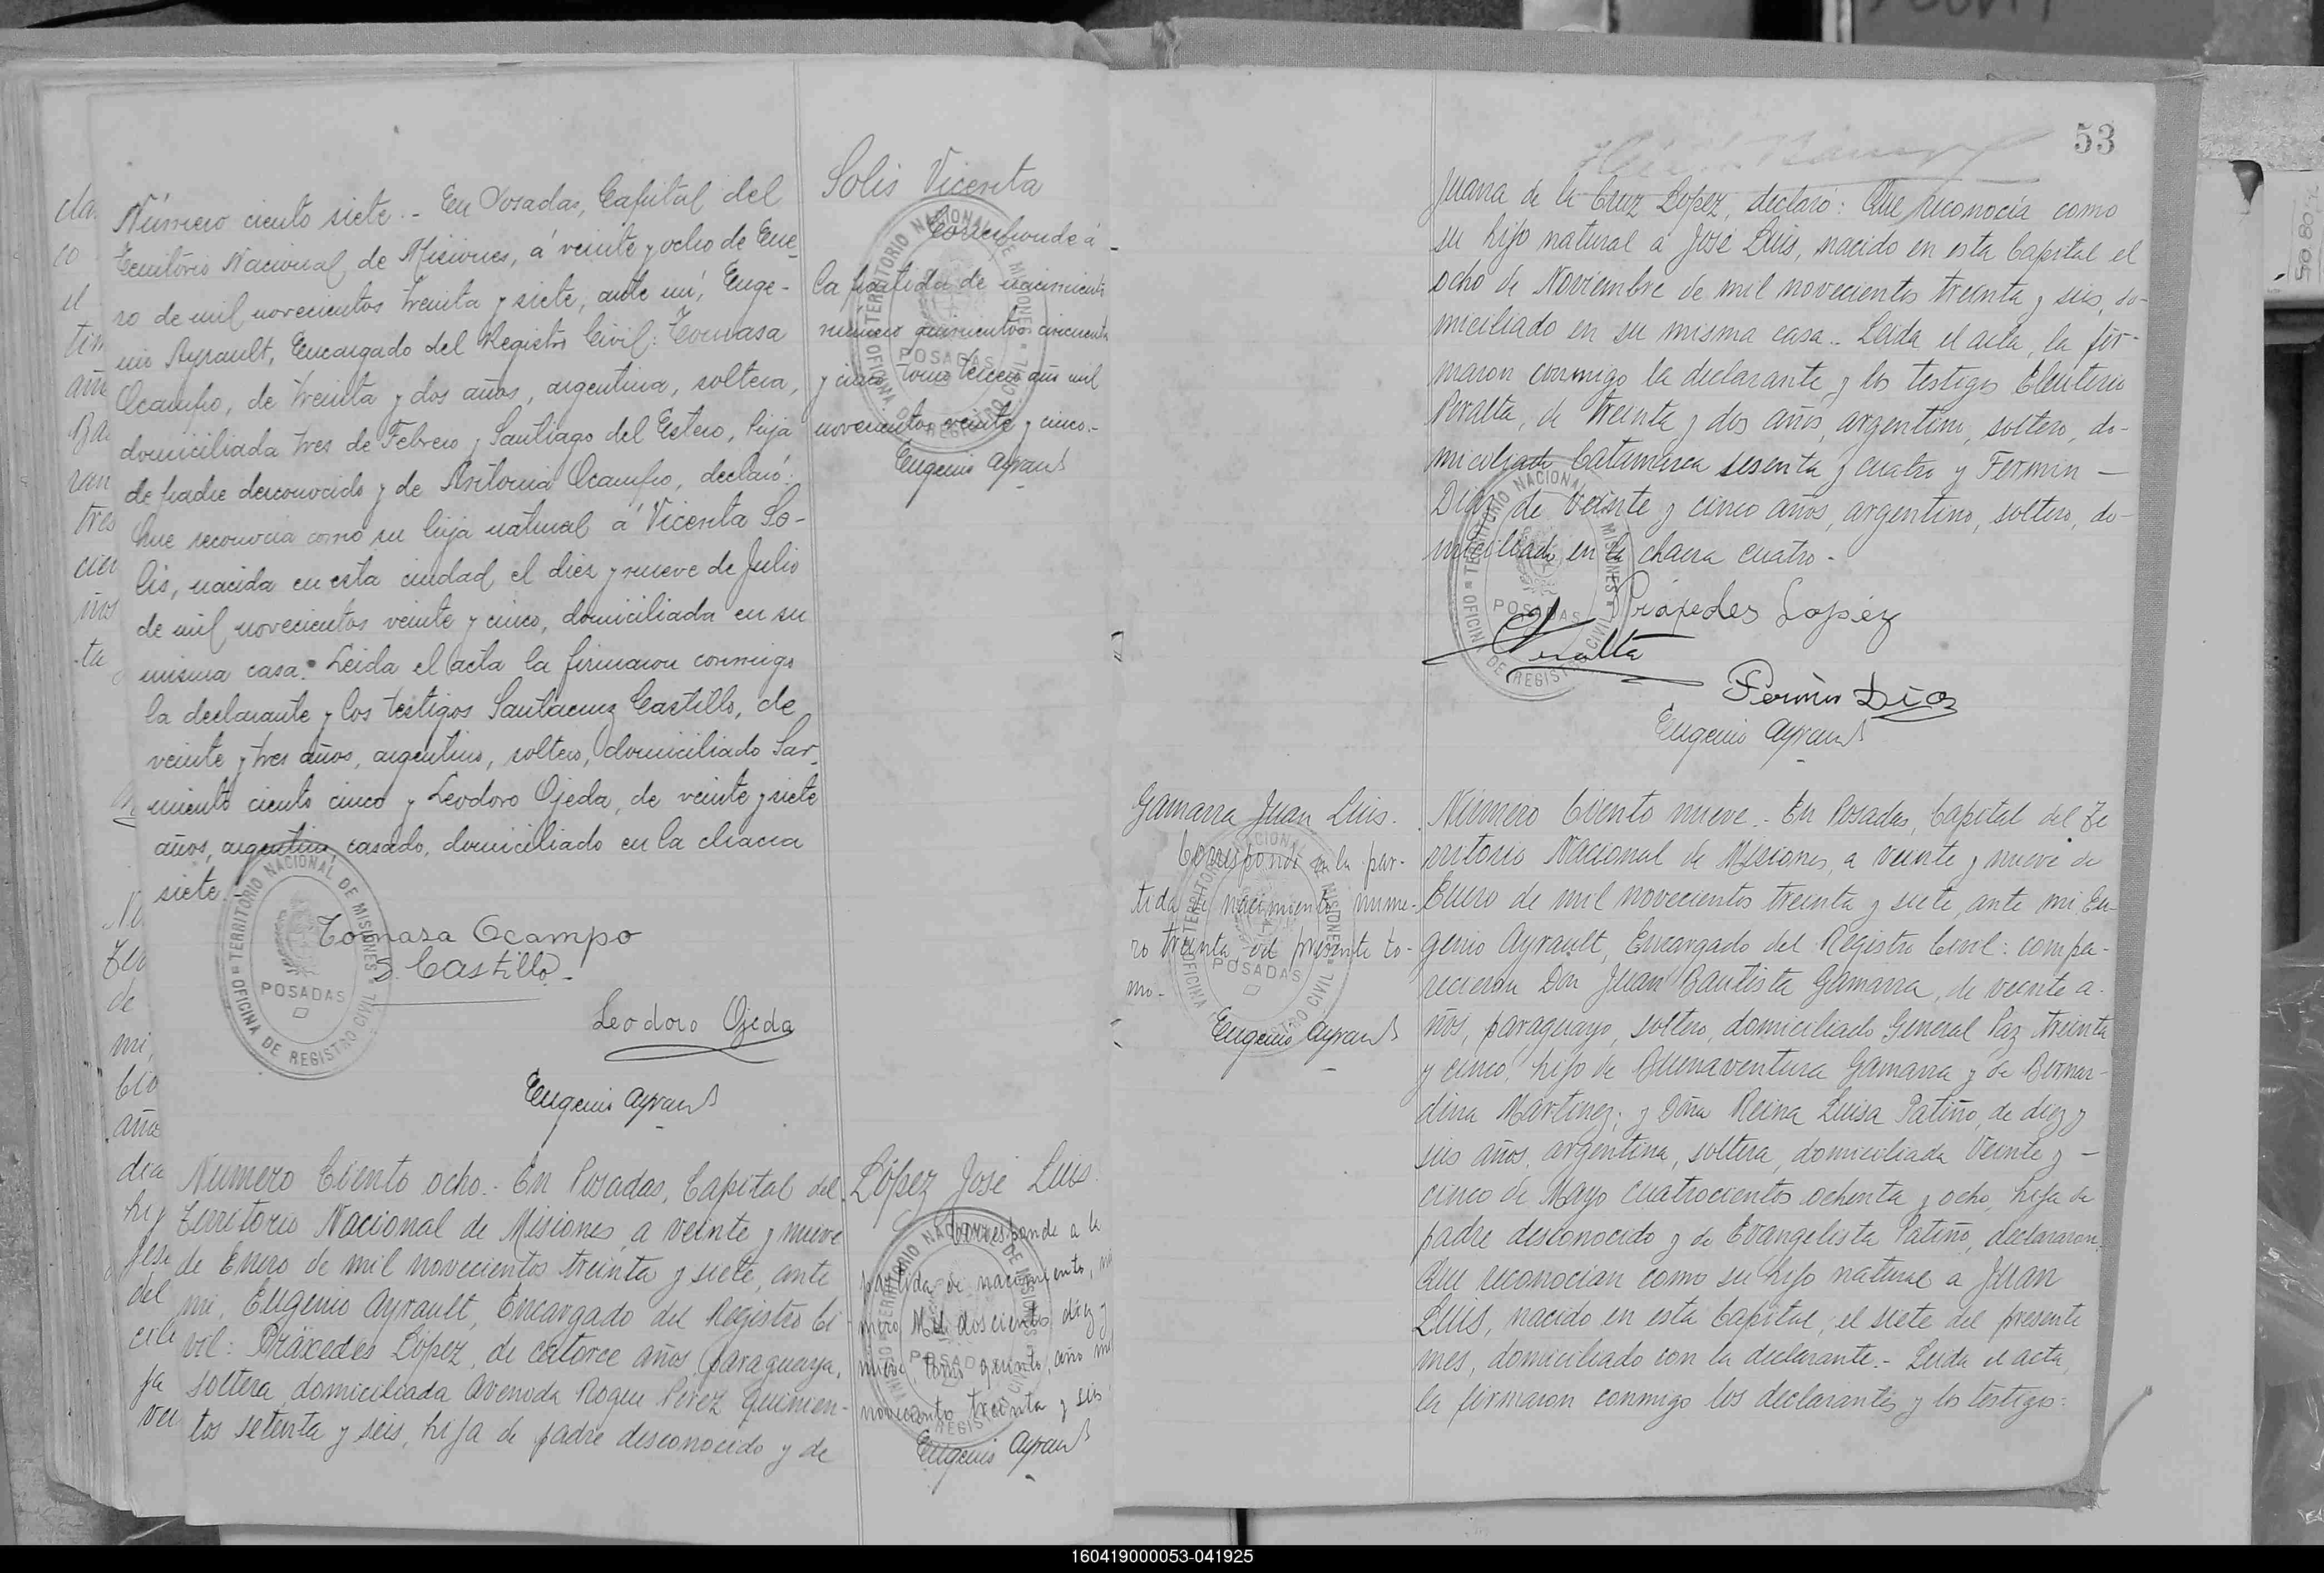 Número ciento siete.- En Posadas, Capital del
Territorio Nacional de Misiones, á veinte y ocho de Ene-
ro de mil novecientos treinta y siete, ante mí, Euge-
nio Ayrault, Encargado del Registro Civil: Tomasa
Ocampo, de treinta y dos años, argentina, soltera,
domiciliada tres de Febrero y Santiago del Estero, hija
de padre desconocido y de Antonia Ocampo, declaró:
Que reconocia como su hija natural á Vicenta So-
lis, nacida en esta ciudad el diez y nueve de Julio
de mil novecientos veinte y cinco, domiciliada en su
misma casa.- Leida el acta la firmaron conmigo
la declarante y los testigos Santacruz Castillo, de
veinte y tres años, argentino, soltero, domiciliado Sar-
miento ciento cinco y Leodoro Ojeda, de veinte y siete
años, argentino, casado, domiciliado en la chacra
siete.-
Tomasa Ocampo
S. Castillo
Leodoro Ojeda
Eugenio Ayrault
Solis Vicenta
Corresponde á
la partida de nacimiento
número quinientos cincuenta
y cinco tomo tercero año mil
novecientos veinte y cinco.-
Eugenio Ayrault
OFICINA DE REGISTRO CIVIL
TERRITORIO NACIONAL DE MISIONES
POSADAS
Numero Ciento ocho.- En Posadas, Capital del
Territorio Nacional de Misiones, a veinte y nueve
de Enero de mil novecientos treinta y siete, ante
mi, Eugenio Ayrault, Encargado del Registro Ci-
vil: Práxedes López, de catorce años, paraguaya,
soltera, domiciliada Avenida Roque Perez quinien-
tos setenta y seis, hija de padre desconocido y de
López José Luis.
Corresponde a la
partida de nacimiento, nú
mero Mil doscientos diez y
nueve, tomo quinto, año mil
novecientos treinta y seis
Eugenio Ayrault
53
Juana de la Cruz López, declaró: Que reconocía como
su hijo natural a José Luis, nacido en esta Capital el
ocho de Noviembre de mil novecientos treinta y seis, do-
miciliado en su misma casa.- Leida el acta, la fir-
maron conmigo la declarante y los testigos Eleuterio
Peralta, de treinta y dos años, argentino, soltero, do-
miciliado Catamarca sesenta y cuatro y Fermin -
Diaz, de veinte y cinco años, argentino, soltero, do-
miciliado en la chacra cuatro.-
Práxedes Lopéz
Peralta
Fermin Diaz
Eugenio Ayrault
Gamarra Juan Luis.
Corresponde a la par-
tida de nacimiento nume-
ro treinta del presente to-
mo.-
Eugenio Ayrault
Número Ciento nueve.- En Posadas, Capital del Te
rritorio Nacional de Misiones, a veinte y nueve de
Enero de mil novecientos treinta y siete, ante mi, Eu-
genio Ayrault, Encargado del Registro Civil: compa-
recieron Don Juan Bautista Gamarra, de veinte a-
ños, paraguayo, soltero, domiciliado General Paz treinta
y cinco, hijo de Buenaventura Gamarra y de Bernar-
dina Martinez; y Doña Reina Luisa Patiño, de diez y
seis años, argentina, soltera, domiciliada Veinte y -
cinco de Mayo cuatrocientos ochenta y ocho, hija de
padre desconocido y de Evangelista Patiño, declararon:
Que reconocian como su hijo natural a Juan
Luis, nacido en esta Capital, el siete del presente
mes, domiciliado con la declarante.- Leida el acta,
la firmaron conmigo los declarantes y los testigos:
160419000053-041925